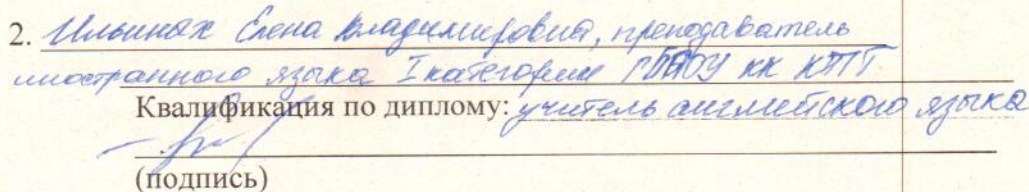 2. Ильиных Елена Владимировна, преподаватель
иностранного языка I категории ГБПОУ КК КТТ
Квалификация по диплому: учитель английского языка
(подпись)